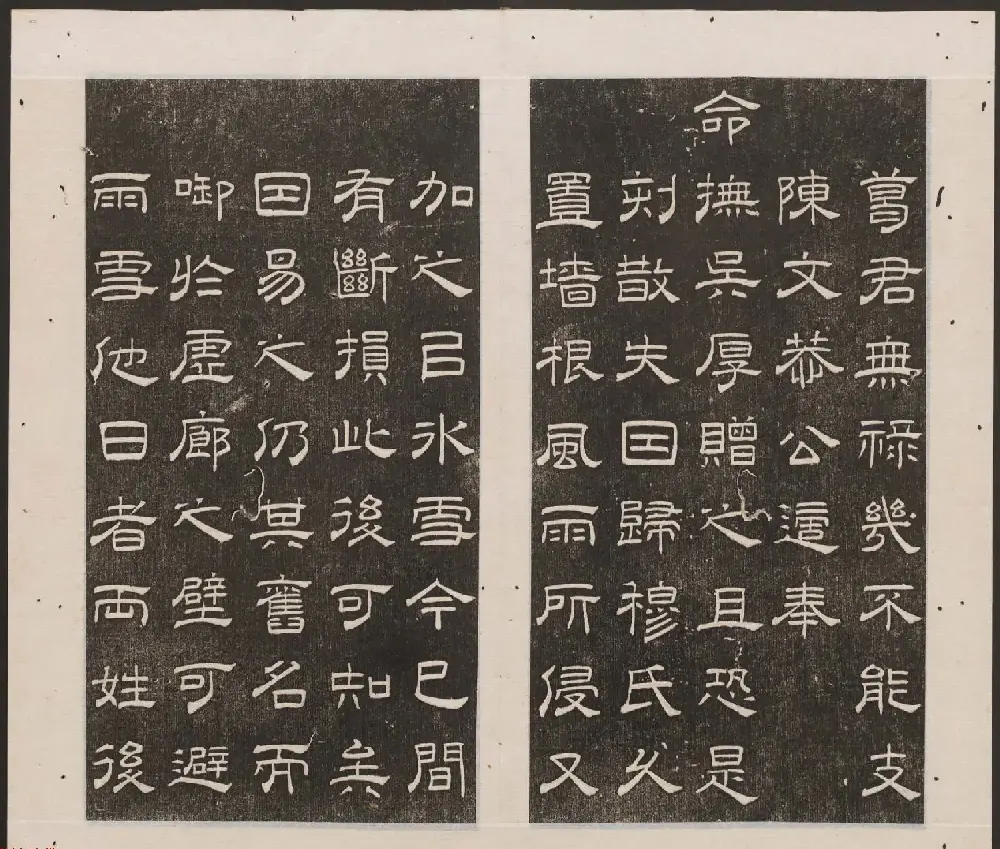 葛君無祿幾不能支
陳文恭公適奉
命撫吳厚贈之且恐是
刻散失因歸穆氏久
置墻根風雨所侵又
加之以冰雪今已間
有斷損此後可知矣
因易之仍其舊名而
啣於虛廊之壁可避
雨雪他日者両姓後